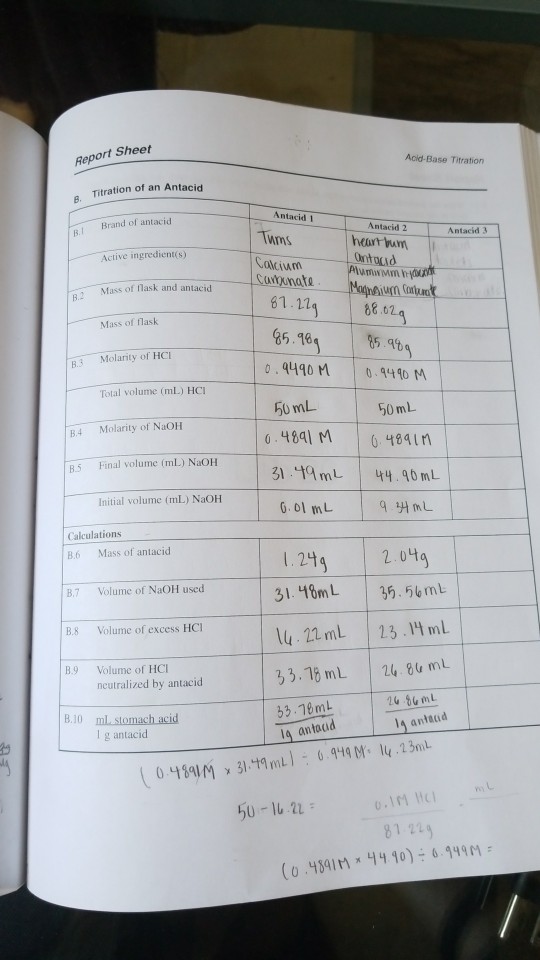 Report Sheet
Acid-Base Titration
B. Titration of an Antacid
Antacid 1 Antacid 2 Antacid 3
B.1 Brand of antacid Tums heartburn antacid
Active ingredient(s) Calcium Carbonate. Aluminium hydroxide Magnesium Carbonate
B.2 Mass of flask and antacid 87.22g 88.02g
Mass of flask 85.98g 85.98g
B.3 Molarity of HCl 0.9490 M 0.9490 M
Total volume (mL) HCl 50mL 50mL
B.4 Molarity of NaOH 0.4891 M 0.4891M
B.5 Final volume (mL) NaOH 31.49mL 44.90mL
Initial volume (mL) NaOH 0.01 mL 9.34 mL
Calculations
B.6 Mass of antacid 1.24g 2.04g
B.7 Volume of NaOH used 31.48mL 35.56mL
B.8 Volume of excess HCl 16.22mL 23.14mL
B.9 Volume of HCl neutralized by antacid 33.78mL 26.86mL
B.10 mL stomach acid 33.78mL 26.86mL
1 g antacid 1g antacid 1g antacid
(0.4891M x 31.49mL) ÷ 0.949M= 16.23mL
50-16.22 =
0.1M HCl - mL
87.22g
(0.4891M × 44.90) ÷ 0.949M =